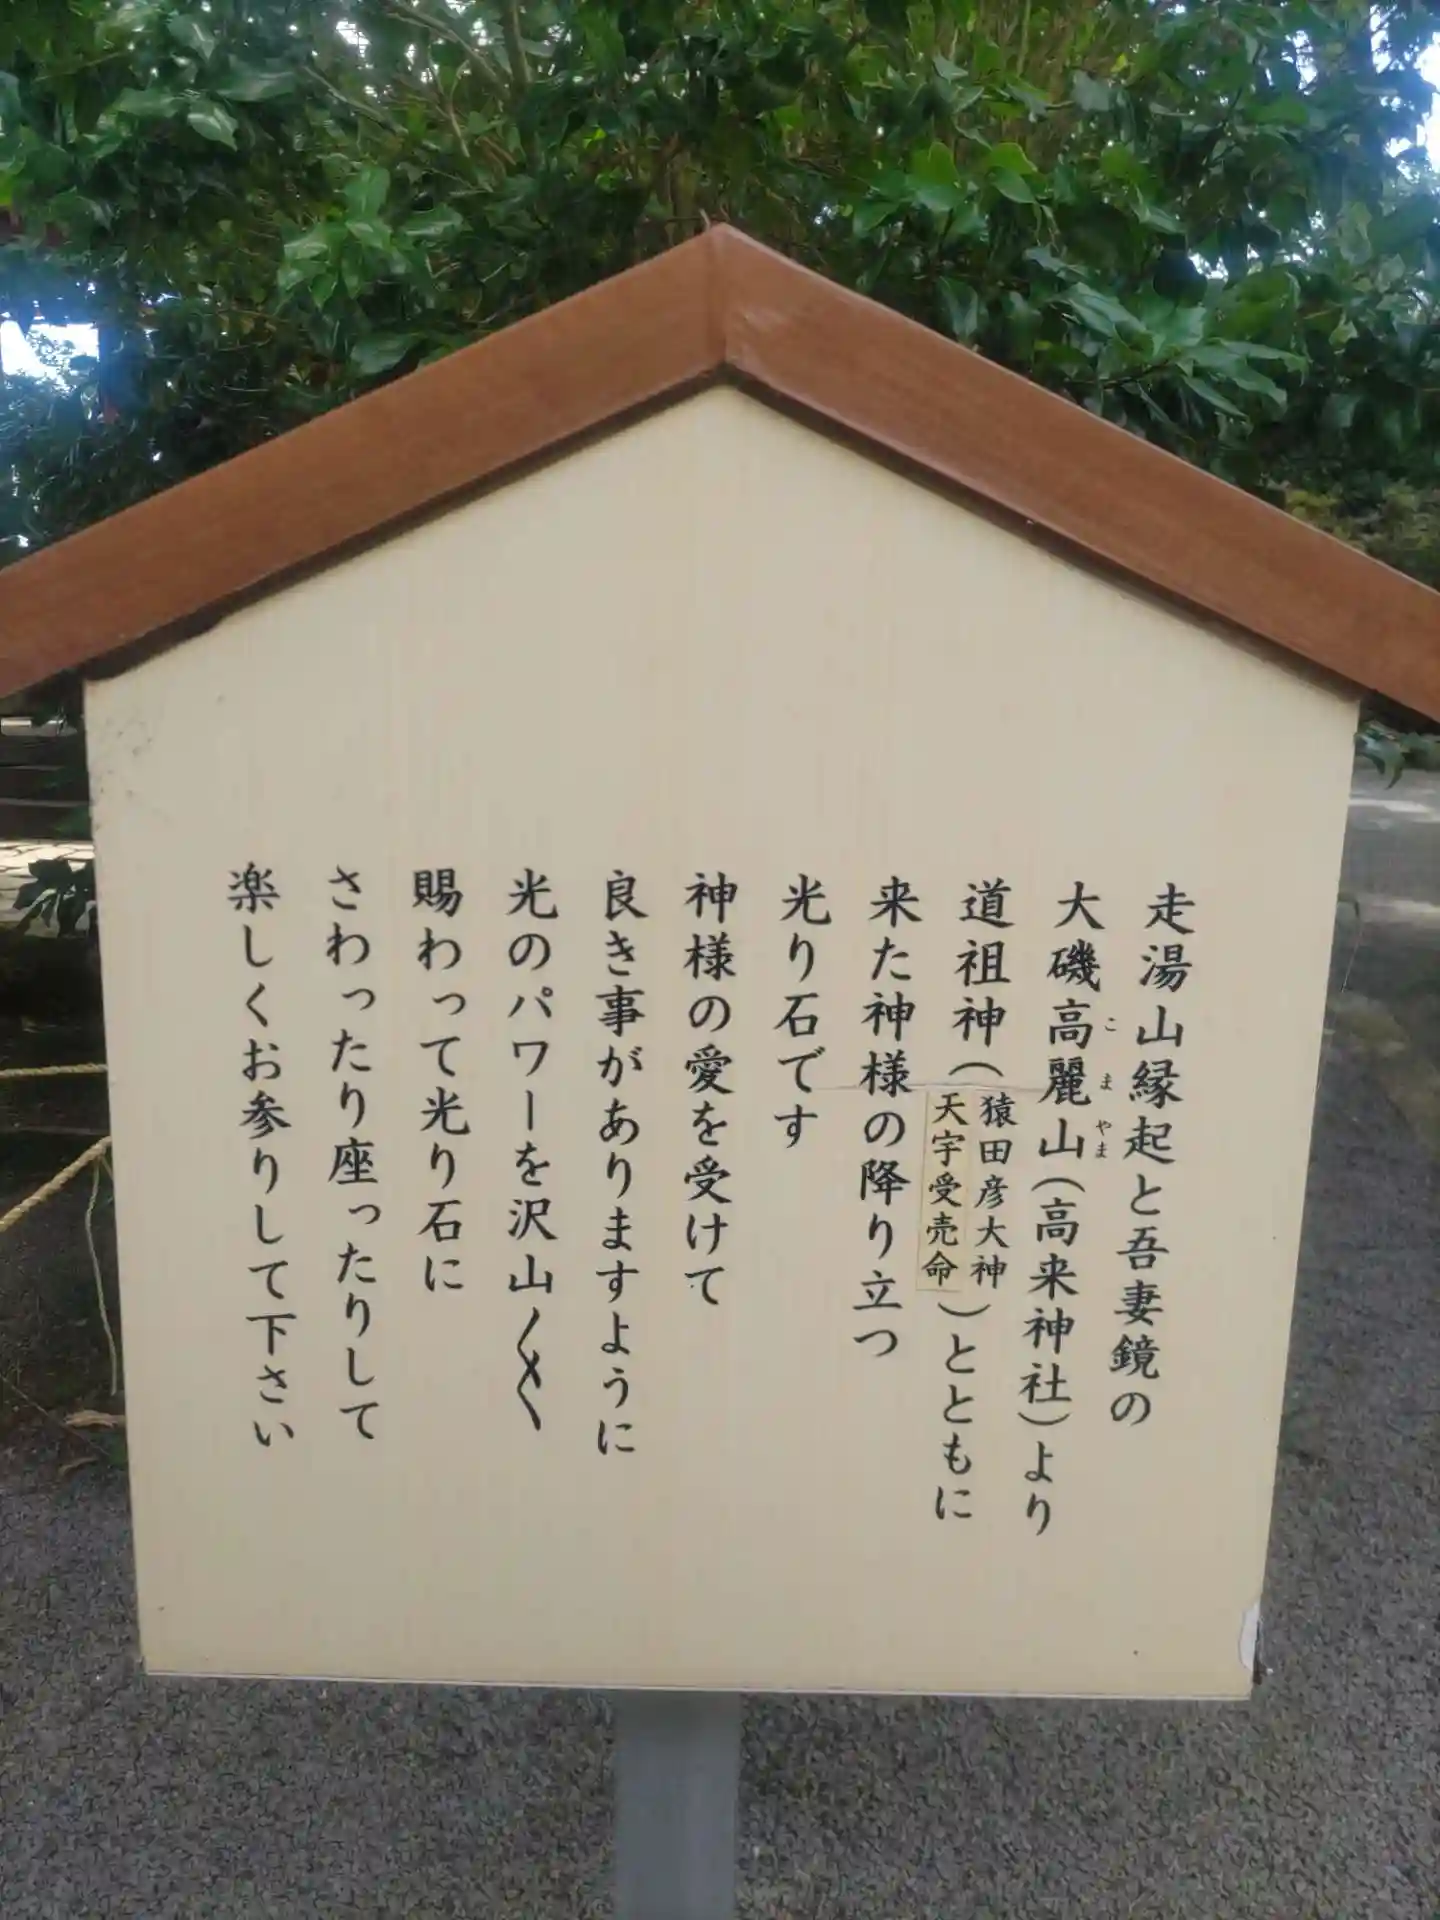 走湯山縁起と吾妻鏡の
大磯高麗山(高来神社)より
こまやま
道祖神(猿田彦大神
天宇受売命)とともに
来た神様の降り立つ
光り石です
神様の愛を受けて
良き事がありますように
光のパワーを沢山〱〱
賜わって光り石に
さわったり座ったりして
楽しくお参りして下さい